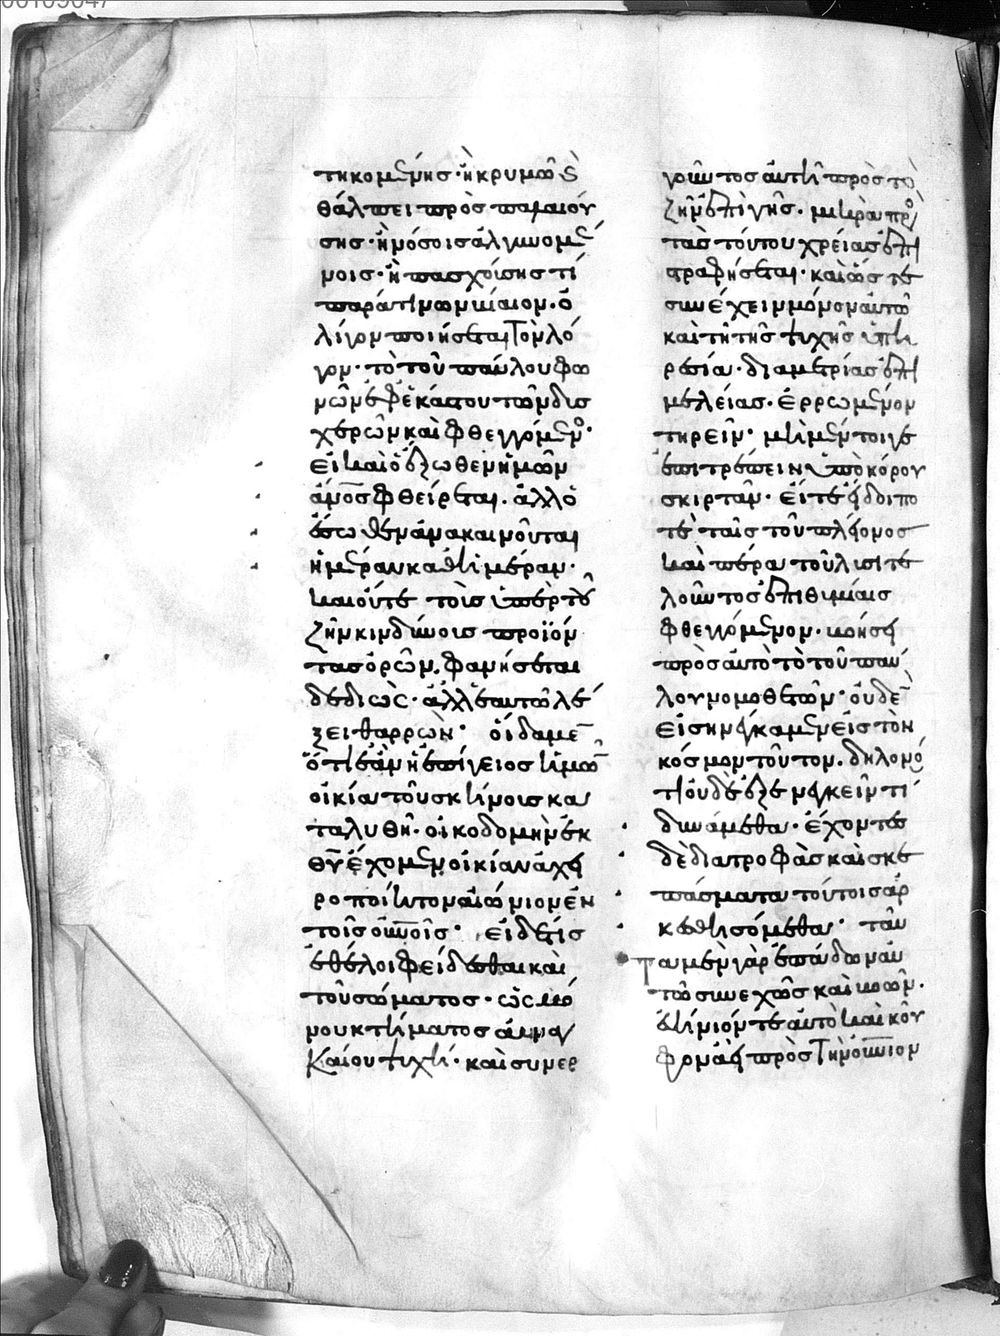 τηκομένης· ἢ κρυμῶ καὶ
θάλπει προσπαλαιού
σης· ἢ νόσοις ἀλγυνομέ
νοις· ἢ πασχούσης τί
παρὰ τῶν βιαίων· ὀ
λίγον ποιήσεται τὸν λό
γον· τὸ τοῦ παύλου φω
νῶν ἐφεκάστου τῶν δυσ
χερῶν καὶ φθεγγόμενος·
εἰ καὶ ὁ ἔξωθεν ἡμῶν
ἄνος φθείρεται· ἀλλ ὁ
ἔσωθεν ἀνακαινοῦται
ἡμέραν καθημέραν·
καὶ οὔτε τοῖς ὑπὲρ τοῦ
ζῆν κινδύνοις προϊόν
τας ὁρῶν, φανήσεται
δεδιὼς· ἀλλ ἑαυτῶ λέ
ξει θαρρὼν· οἴδαμεν
ὅτι ἐὰν ἡ ἐπίγειος ἡμῶν
οἰκία τοῦ σκήνους κα
ταλυθῆ· οἰκοδομὴν ἐκ
θυ ἔχομεν, οἰκίαν ἀχει
ροποίητον αἰώνιον ἐν
τοῖς οὐνοῖς· εἰ δέ τις
ἐθέλοι φείδεσθαι καὶ
τοῦ σώματος· ὡς μό
νου κτήματος ἀναγ
καίου ψυχῆ· καὶ συνερ
γοῦντος αὐτῆ πρὸς τὸ
ζῆν ἐπὶ γῆς· μικρὰ πρὸς
τὰς τούτου χρείας ἐπι
στραφήσεται· καὶ ὥστε
συνέχειν μόνον αὐτῶ
καὶ τῆ τῆς ψυχῆς ὑπη
ρεσία· διὰ μετρίας ἐπι
μελείας· ἐρρωμένον
τηρεῖν· μὴ μέν τοι γε
ἐπιτρέπειν ὑπὸ κόρου
σκιρτᾶν· εἴ τε ἴδοι πο
τὲ ταῖς τοῦ πλέονος
καὶ πέρα τοῦ λυσιτε
λοῦντος ἐπιθυμίαις
φθεγγόμενον· κοινσει
πρὸς αὐτὸ τὸ τοῦ παύ
λου νομοθετῶν· οὐδὲν
εἰσηνέγκαμεν εἰς τὸν
κόσμον τοῦτον· δῆλον ὅ
τι οὐδὲ ἐξενεγκεῖν τί
δυνάμεθα· ἔχοντες
δὲ διατροφὰς καὶ σκε
πάσματα τούτοις ἀρ
κεσθησόμεθα· ταῦ
τα μὲν γὰρ ἐπάδων αὐ
τῶ συνεχῶς καὶ βοῶν·
εὐήνιόν τε αὐτὸ καὶ κοῦ
φον ἀεὶ πρὸς τὴν οὐνιον